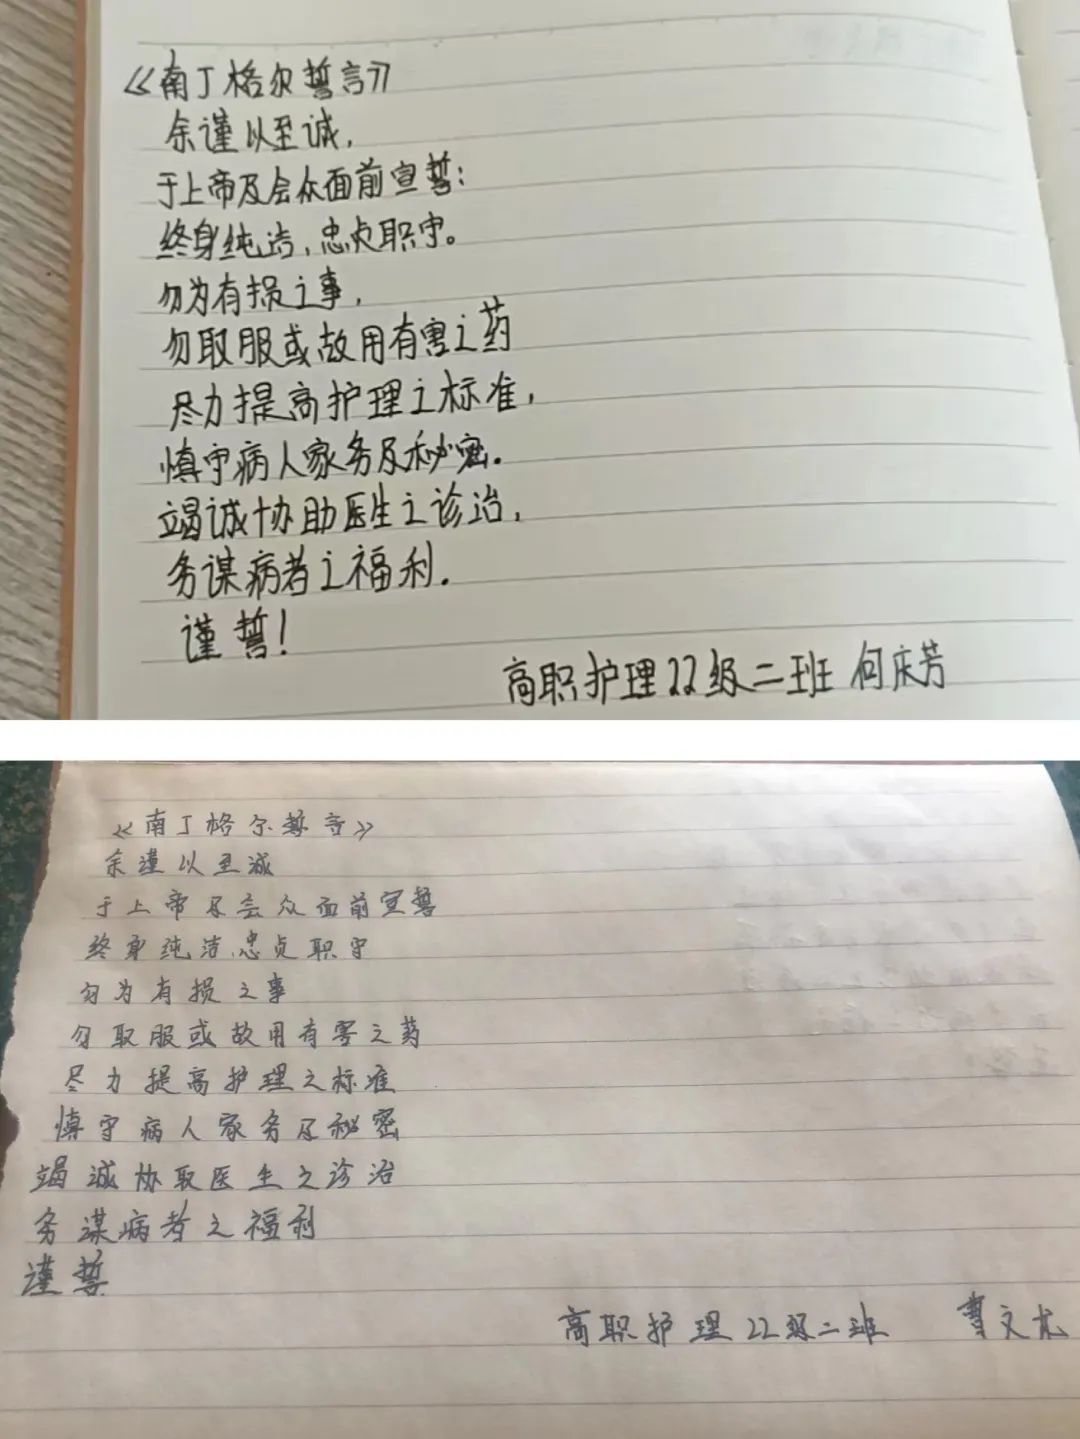 《南丁格尔誓言》
余谨以至诚，
于上帝及会众面前宣誓：
终身纯洁，忠贞职守。
勿为有损之事，
勿取服或故用有害之药
尽力提高护理之标准，
慎守病人家务及秘密.
竭诚协助医生之诊治，
务谋病者之福利.
谨誓！
高职护理22级二班 何庆芳
《南丁格尔誓言》
余谨以至诚
于上帝及会众面前宣誓
终身纯洁、忠贞职守
勿为有损之事
勿取服或故用有害之药
尽力提高护理之标准
慎守病人家务及秘密
竭诚协取医生之诊治
务谋病者之福利
谨誓
高职护理22级二班 曹文尤